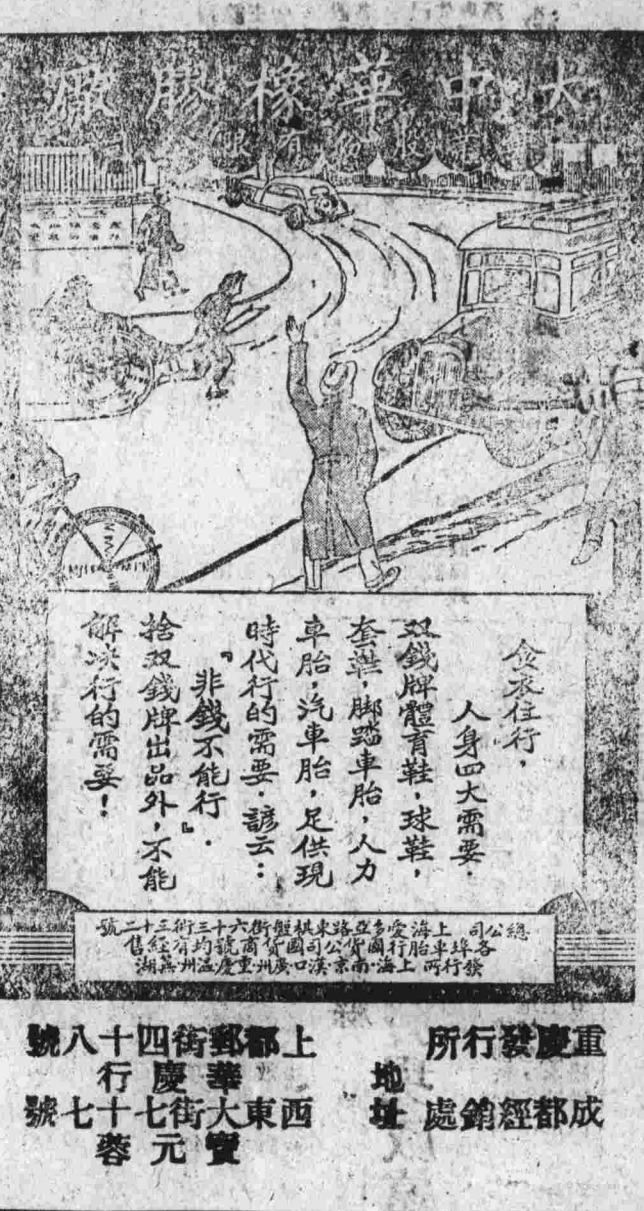 大中華橡膠廠
股份有限
食衣住行，
人身四大需要．
双錢牌體育鞋，球鞋，
套鞋，脚踏車胎，人力
車胎，汽車胎，足供現
時代行的需要．諺云：
『非錢不能行』．
捨双錢牌出品外，不能
解决行的需要！
總公司 上海愛多亞路東棋盤街六十三街三十二號
各埠車胎行國貨公司國貨商號均有經售
發行所 上海·南京·漢口·廣州·重慶·溫州·蕪湖
重慶發行所 上都郵街四十八號
華慶行
地址
成都經銷處 西東大街七十七號
寶元蓉